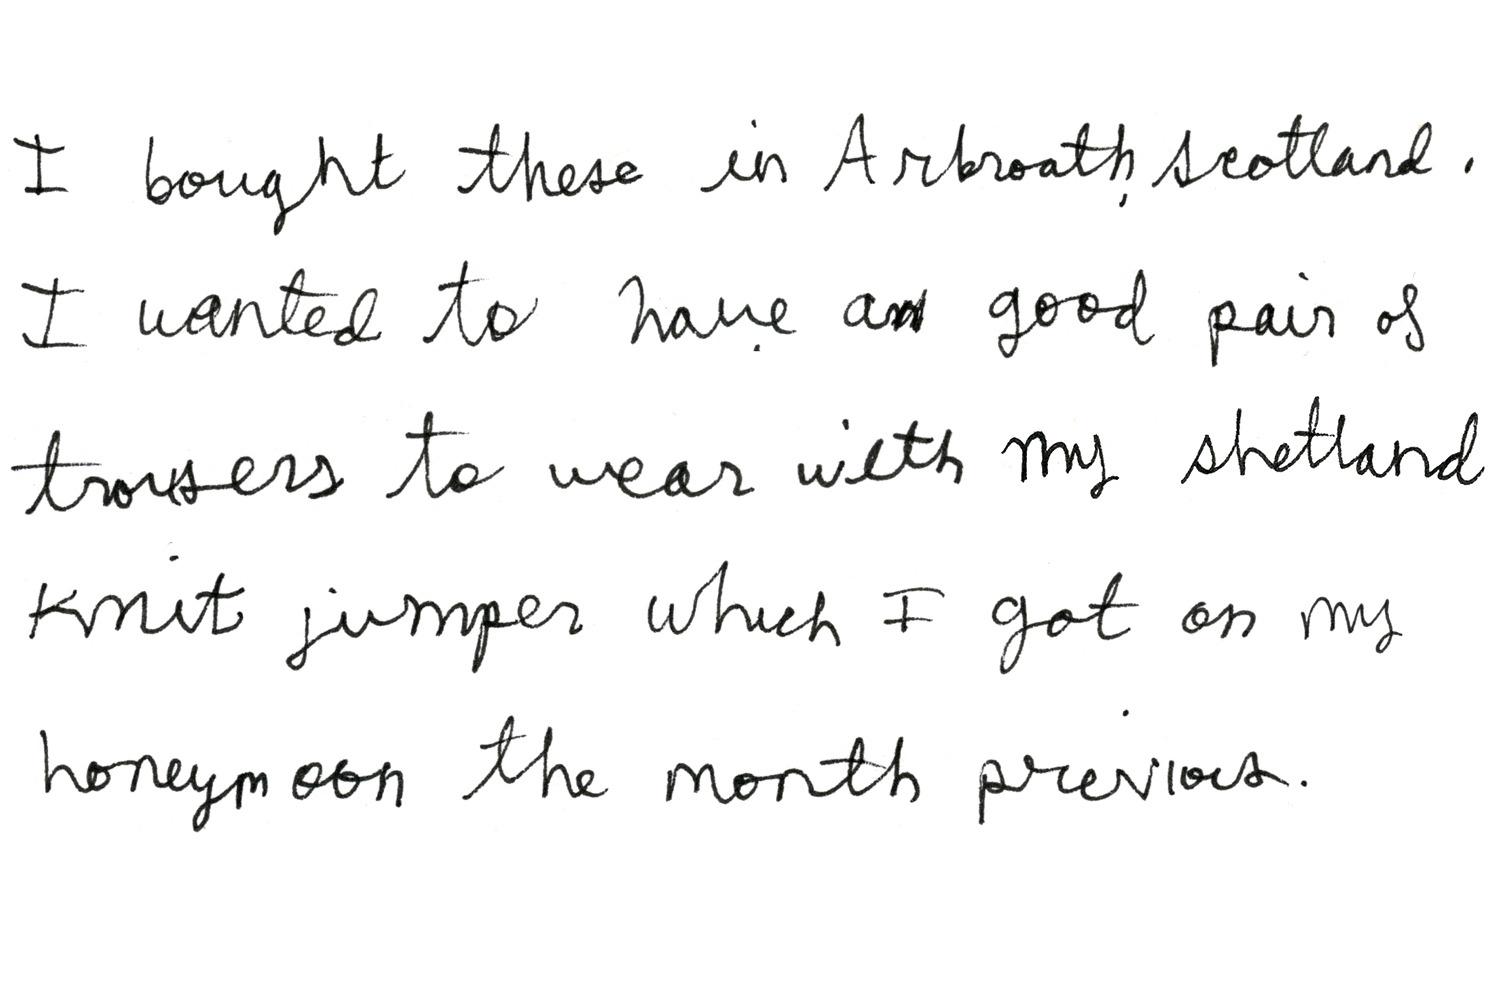 I bought these in Arbroath, Scotland.
I wanted to have a good pair of
trousers to wear with my shetland
knit jumper which I got on my
honeymoon the month previous.